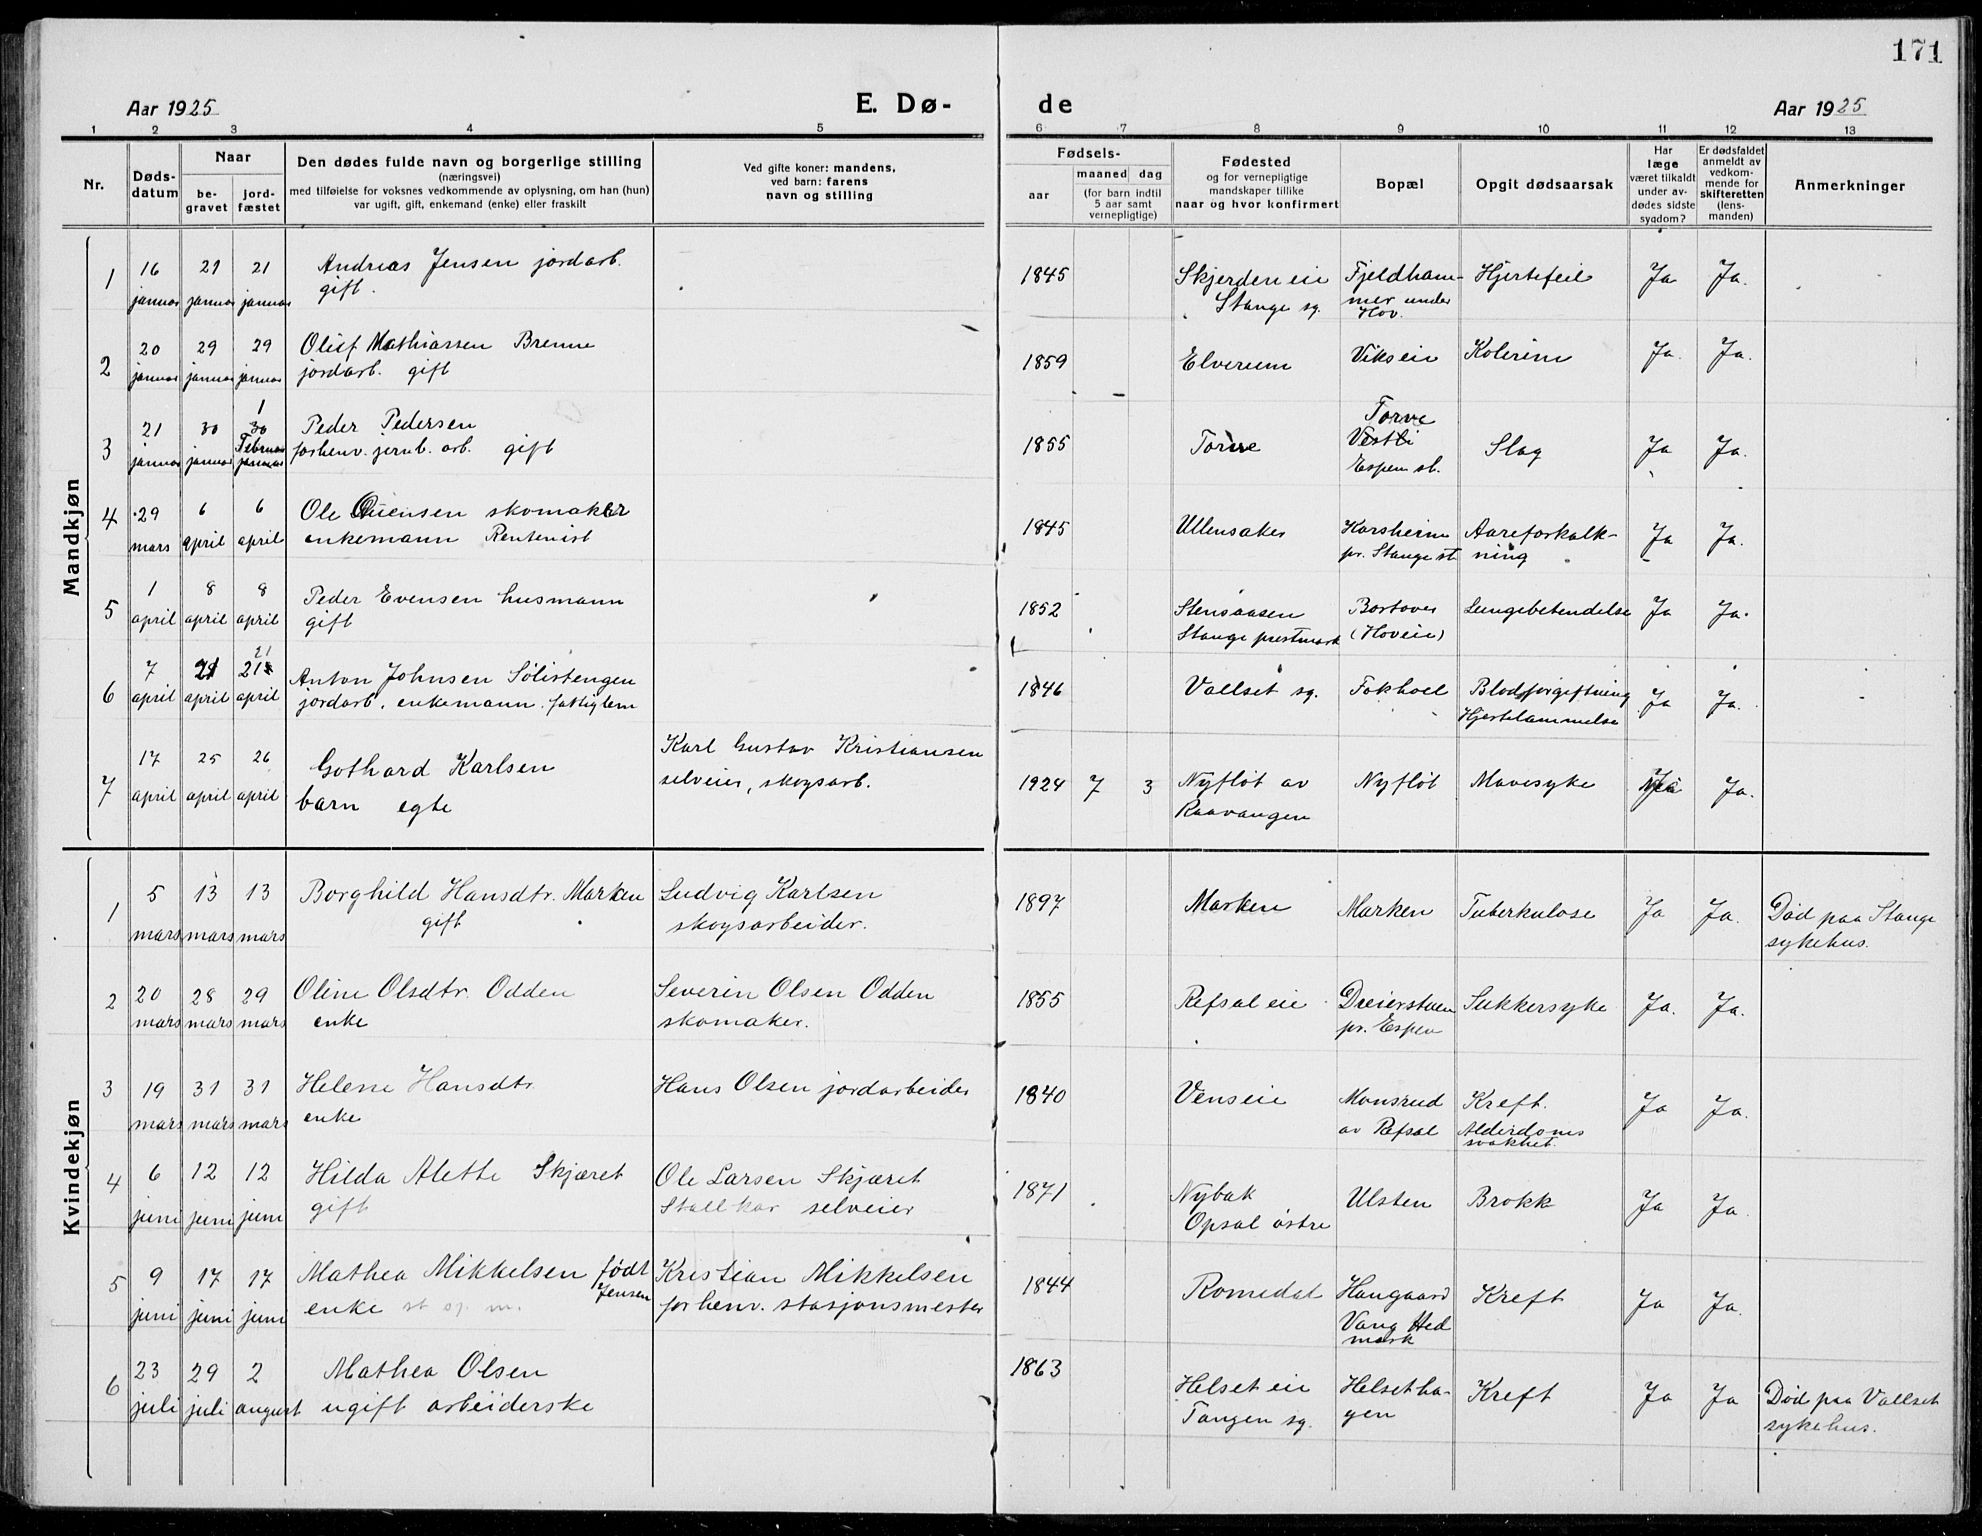 171
Aar 1925
E. Dø-
de
Aar 1925
1 2 3 4 5 6 7 8 9 10 11 12 13
Nr.
Døds-
datum
Naar
be-
gravet
jord-
fæstet
Den dødes fulde navn og borgerlige stilling
(næringsvei)
med tilføielse for voksnes vedkommende av oplysning, om han (hun)
var ugift, gift, enkemand (enke) eller fraskilt
Ved gifte koner: mandens,
ved barn: farens
navn og stilling
Fødsels-
aar
maaned dag
(for barn indtil
5 aar samt
vernepligtige)
Fødested
og for vernepligtige
mandskaper tillike
naar og hvor konfirmert
Bopæl
Opgit dødsaarsak
Har
læge
været tilkaldt
under av-
dødes sidste
sygdom?
Er dødsfaldet
anmeldt av
vedkom-
mende for
skifteretten
(lens-
manden)
Anmerkninger
Mandkjøn
1 16 21 21 Andreas Jensen jordarb. 1845 Skjerden eie Fjeldham- Hjertefeil Ja Ja.
januar januar januar gift. Stange sg. mer under
Hov.
2 20 29 29 Oluf Mathiassen Brenne 1859 Elverum Vikseie Kolerine Ja. Ja.
januar januar januar jordarb. gift
3 21 30 30 1 Peder Pedersen 1855 Torve Torve Slag Ja Ja.
januar januar Februar januar forhenv. jernb. arb. gift Vestli
Espen st.
4 29 6 6 Ole Evensen skomaker 1845 Ullensaker Karsheim Aareforkalk- Ja Ja.
mars april april enkemann Rentenist pr. Stange st ning
5 1 8 8 Peder Evensen husmann 1852 Stensaasen Lungebetendelse Ja Ja.
april april april gift Stange prestmark (Hoveie)
6 7 21 21 21 Anton Johnsen Solistengen 1846 Vallset sg. Fokhoel Blodforgiftning Ja Ja.
april april april jordarb. enkemann. fattiglem Hjertelammelse
7 17 25 26 Gothard Karlsen Karl Gustav Kristiansen 1924 7 3 Nyfløt av Nyfløt Mavesyke Ja Ja.
april april april barn egte selveier, skogsarb. Raavangen
Kvindekjøn
1 5 13 13 Borghild Hansdtr. Marken Ludvig Karlsen 1897 Marken Marken Tuberkulose Ja Ja. Død paa Stange
mars mars mars gift skogsarbeider. sykehus.
2 20 28 29 Oline Olsdtr. Odden Severin Olsen Odden 1855 Refsal eie Dreierstuen Sukkersyke Ja. Ja.
mars mars mars enke skomaker. pr. Espen
3 19 31 31 Helene Hansdtr. Hans Olsen jordarbeider 1840 Venseie Monsrud Kreft. Ja Ja.
mars mars mars enke av Refsal Alderdoms
svakhet.
4 6 12 12 Hilda Alette Skjæret Ole Larsen Skjæret 1871 Nybak Ulsten Brokk Ja Ja.
juni juni juni gift Stallkar selveier Opsal østre
5 9 17 17 Mathea Mikkelsen født Kristian Mikkelsen 1844 Romedal Haugaard Kreft Ja Ja.
juni juni juni enke Jensen forhenv. stasjonsmester Vang Hed
mark
6 23 29 2 Mathea Olsen 1863 Helset eie Helsetha- Kreft Ja Ja Død paa Vallset
juli juli august ugift arbeiderske Tangen sg. gen sykehus.